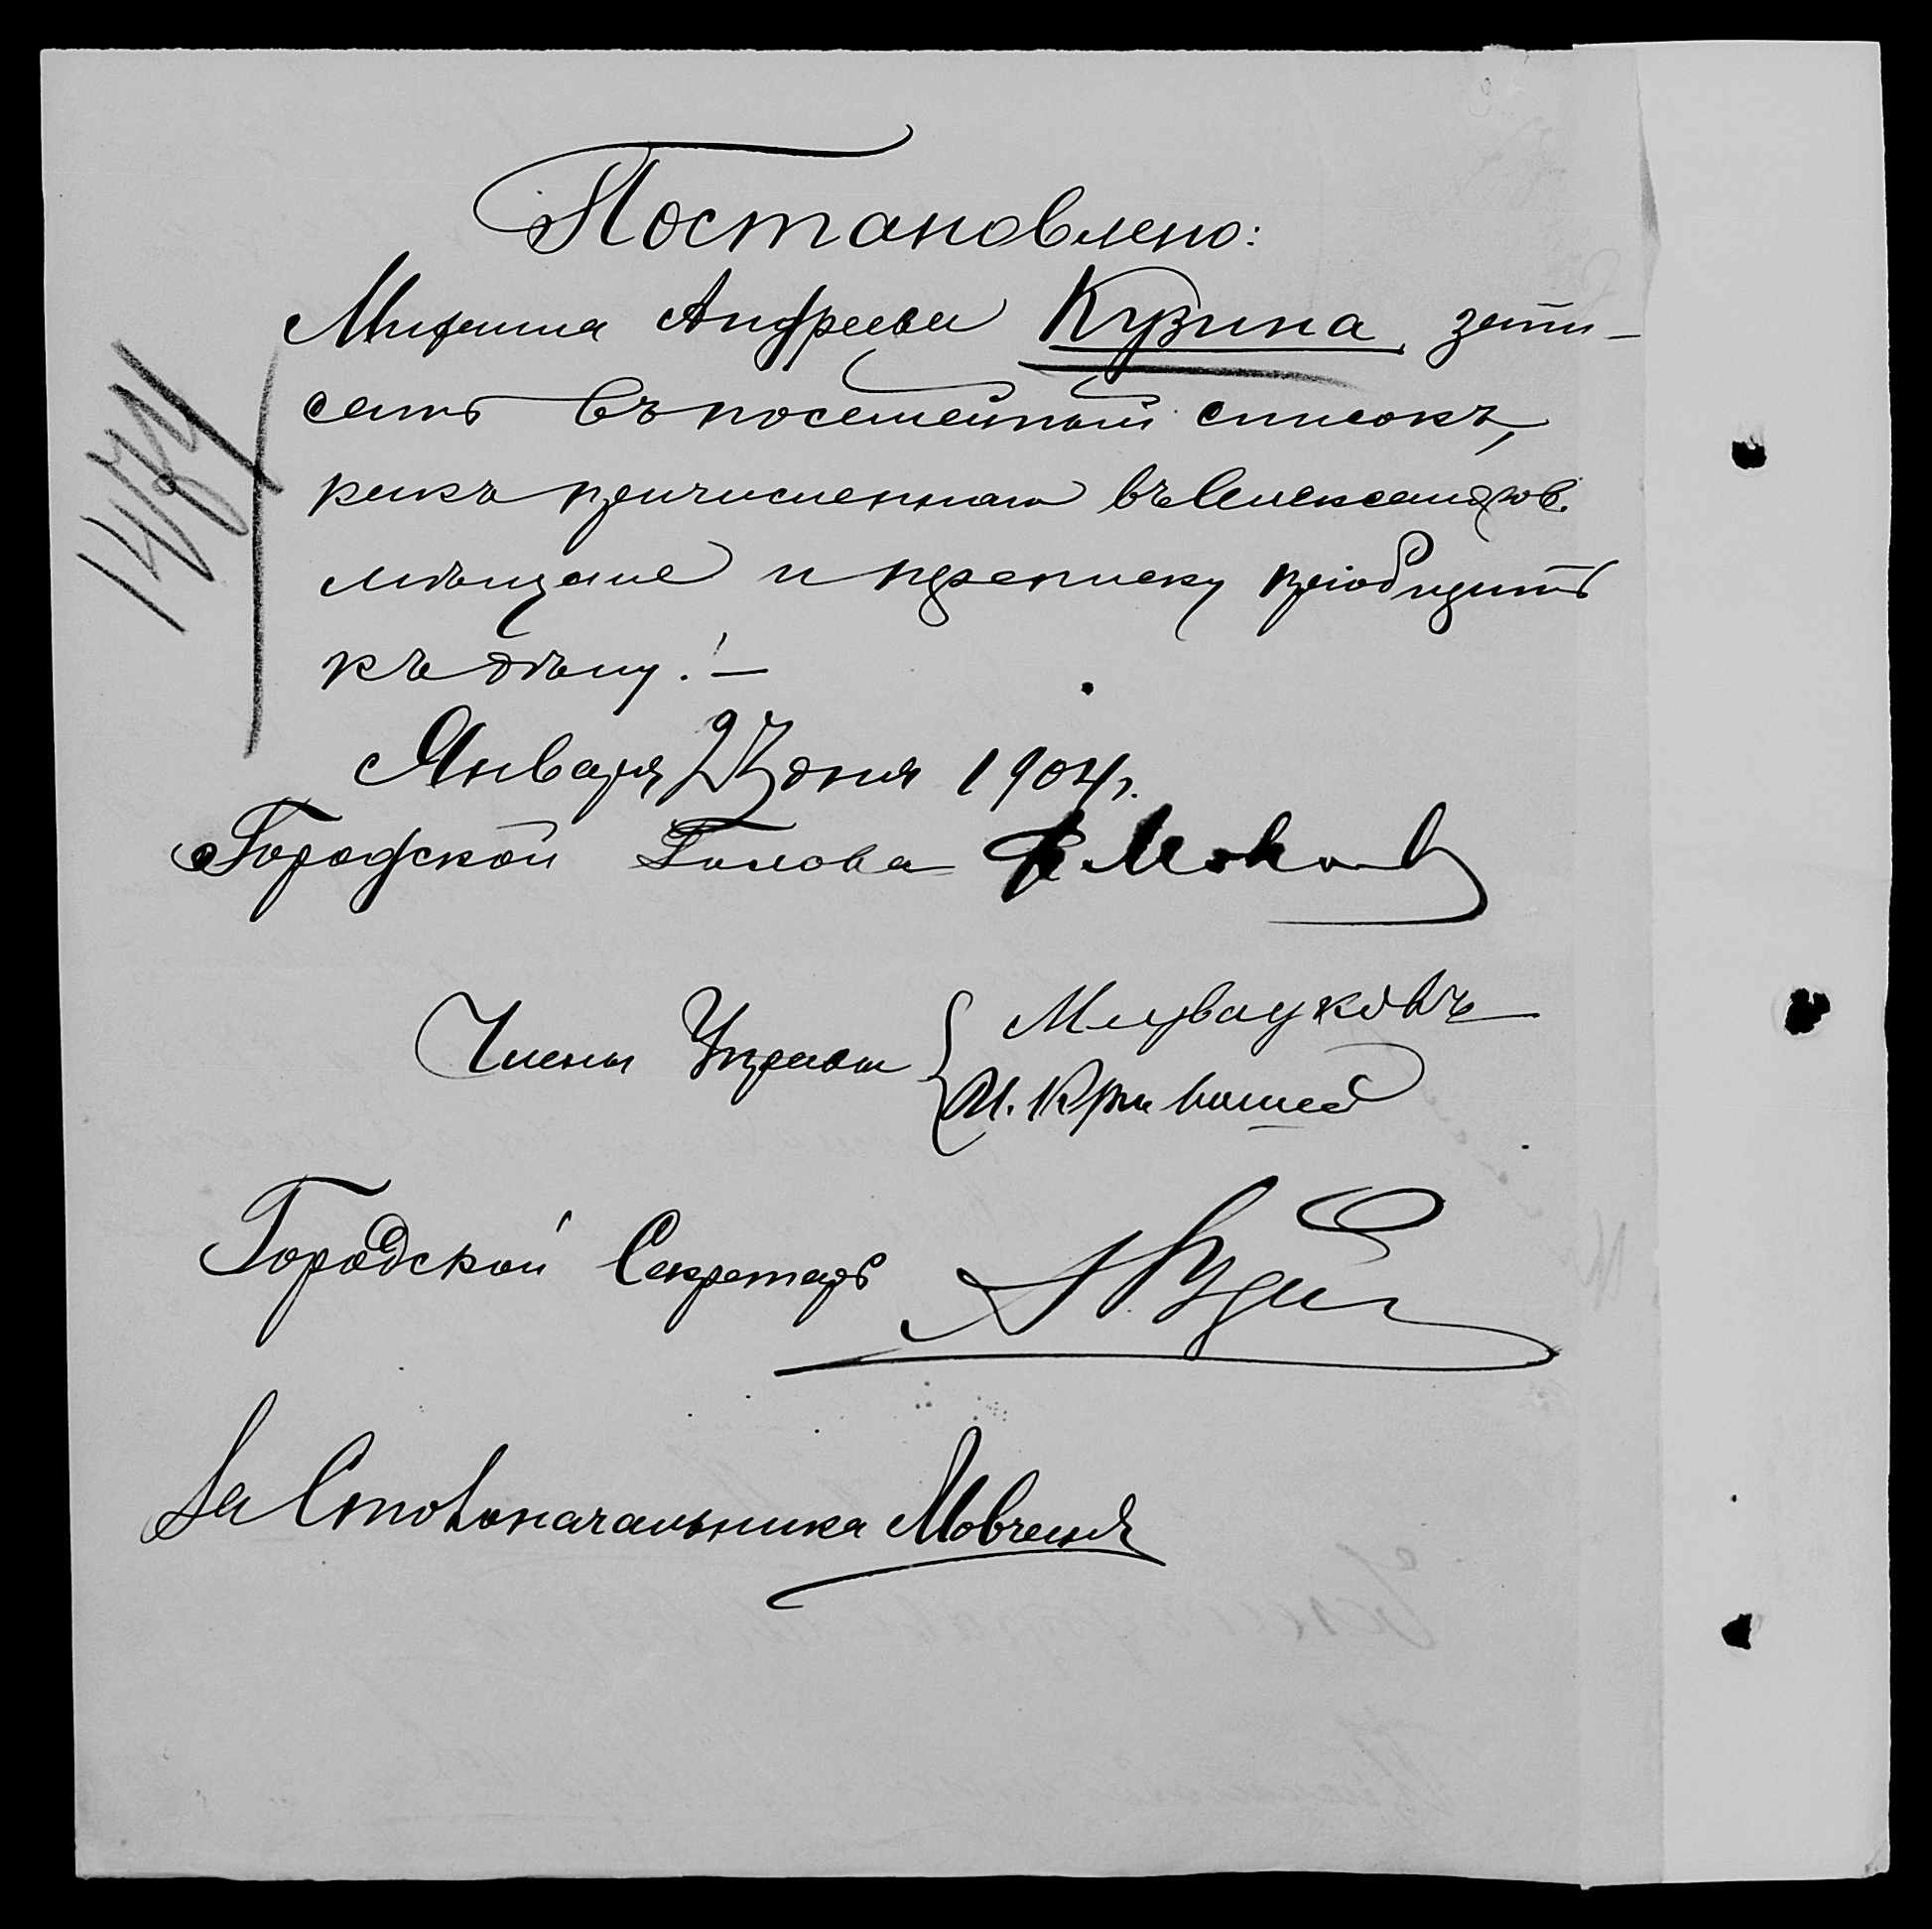 Постановлено:
Андреева Кузина, запи-
сать въ посемейный списокъ,
какъ причисленнаго въ Александров.
мѣщане и переписку пріобщить
къ дѣлу. —
Января 23 дня 1904 г.
Городской Голова
Члены Управы
И. Кривошея
Городской Секретарь
За Столоначальника Мовчанъ